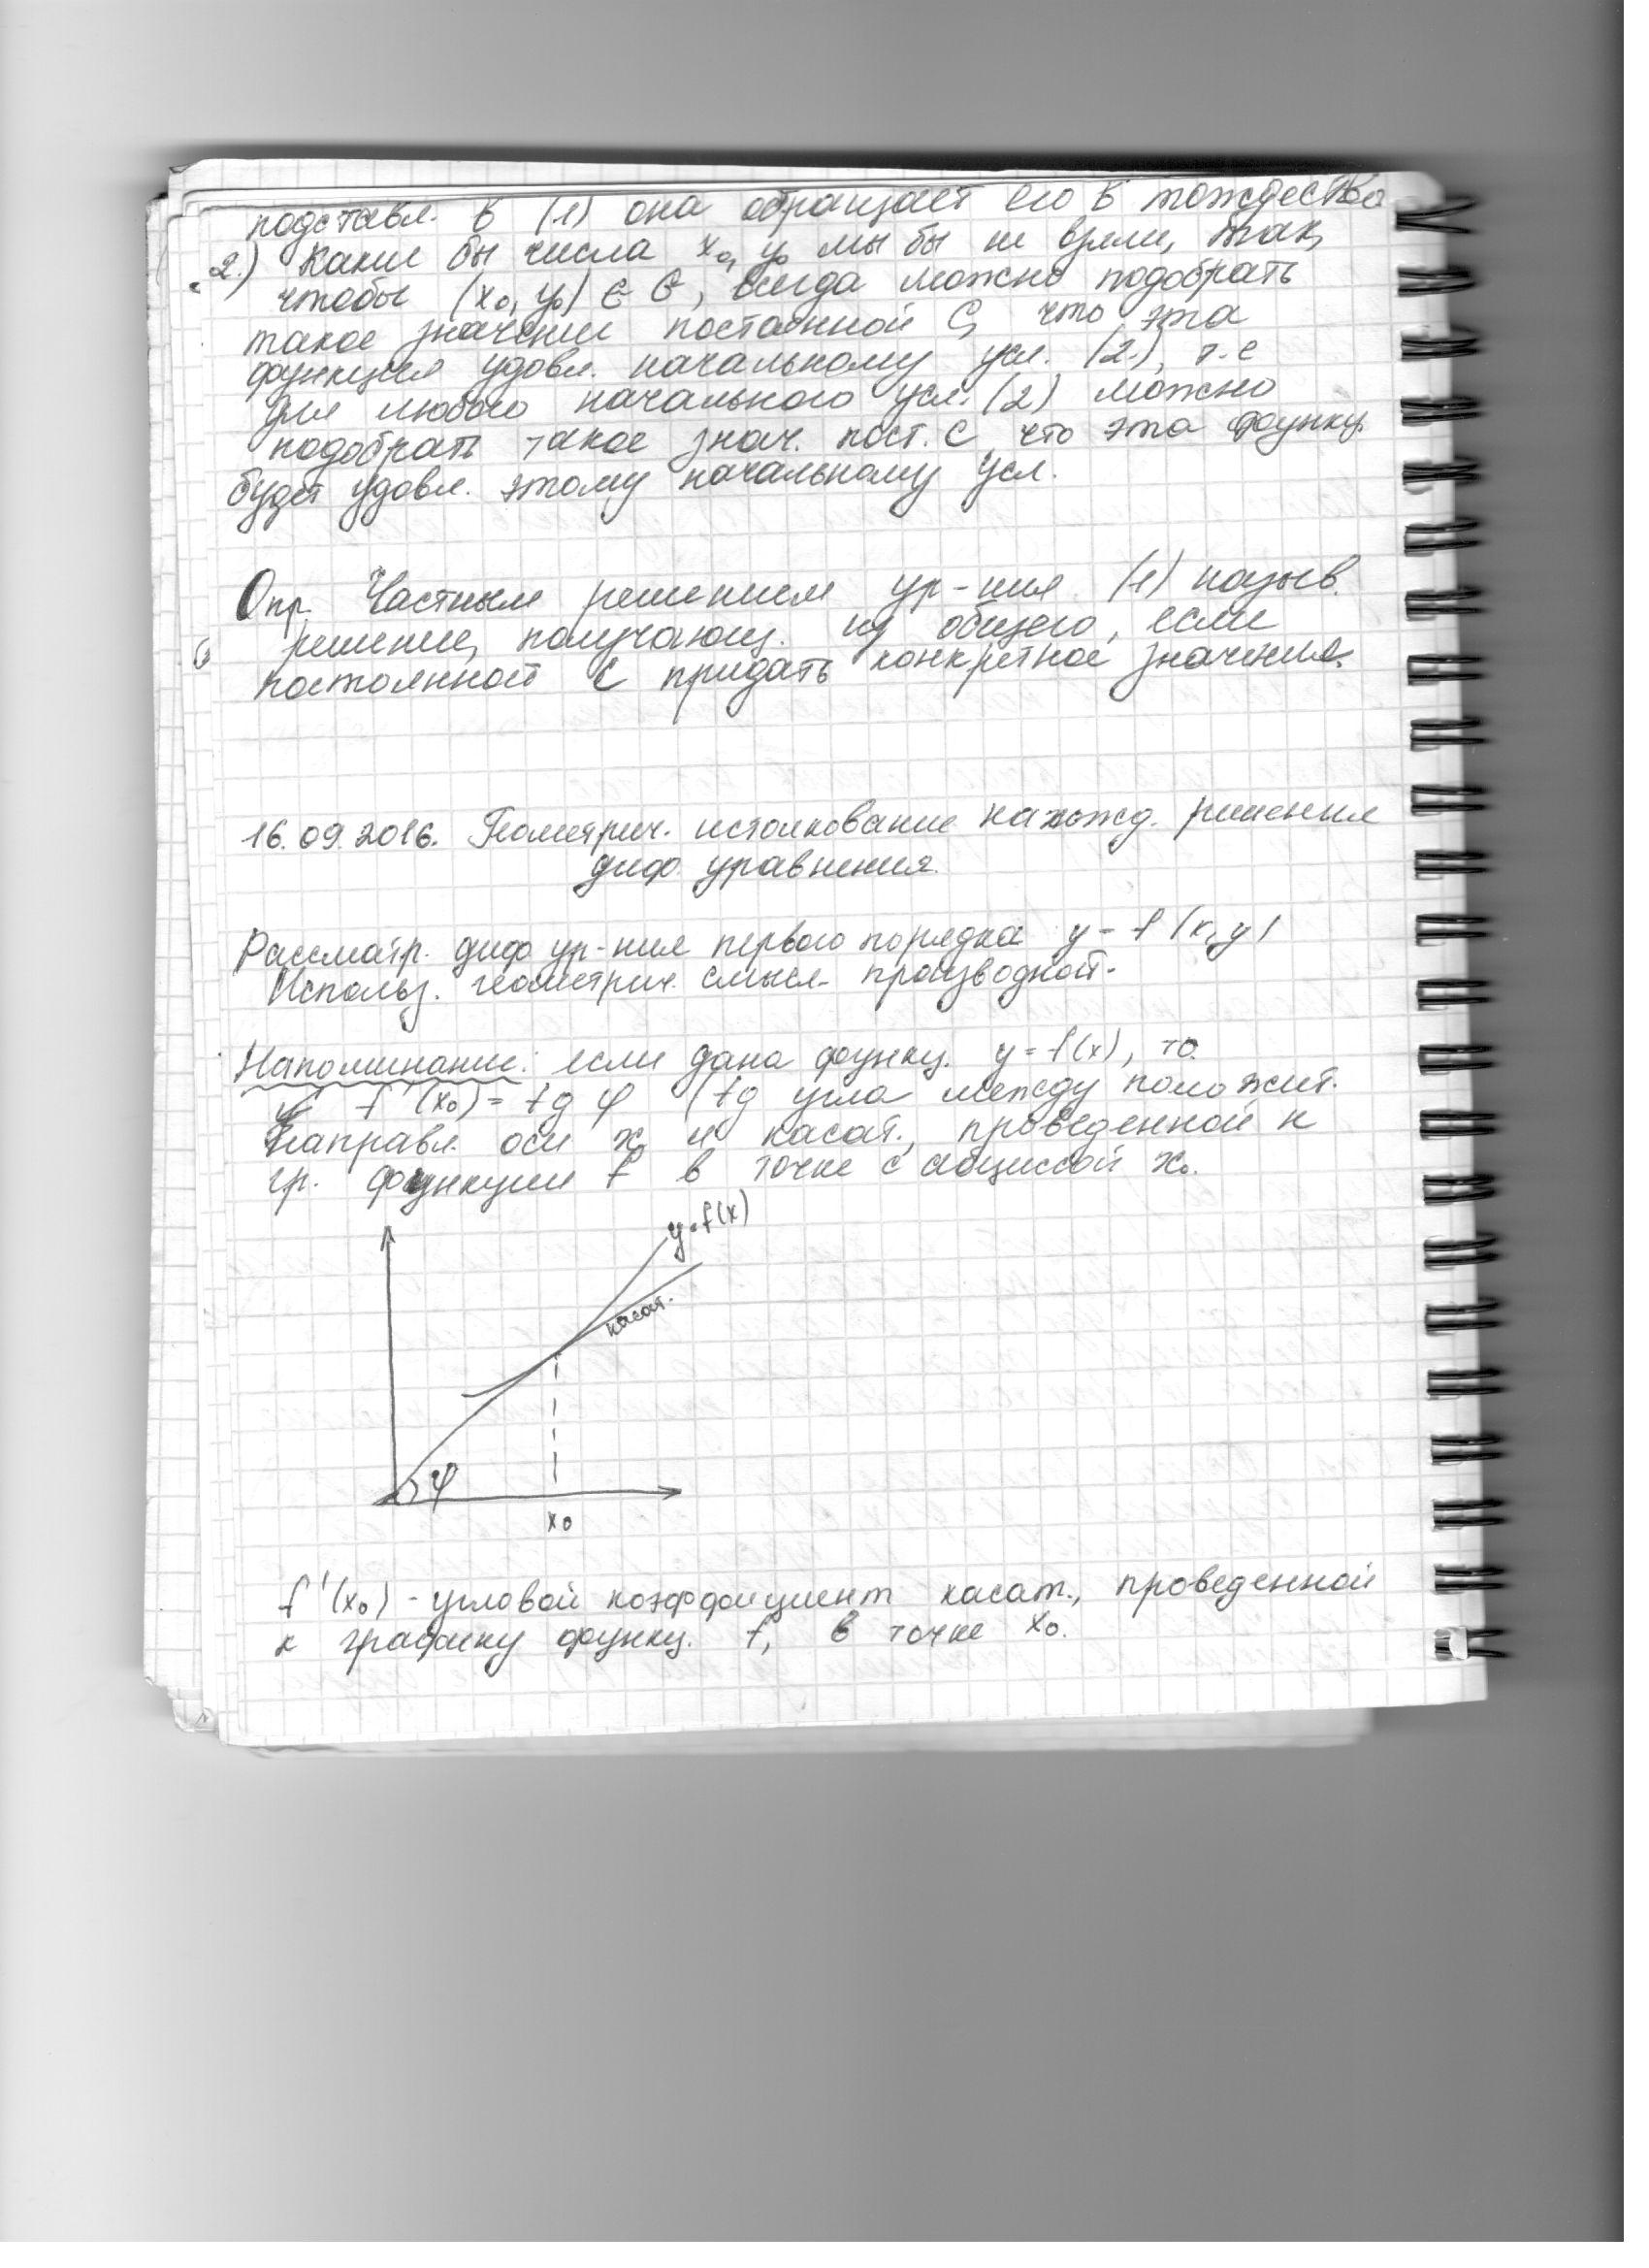 подставл. в (1) она обращает его в тождество
2.) Какие бы числа x₀, y₀ мы бы не взяли, так,
чтобы (x₀, y₀) ∈ G, всегда можно подобрать
такое значение постоянной С, что эта
функция удовл. начальному усл. (2.), т.е
для любого начального усл. (2) можно
подобрать такое знач. пост. С что эта функц.
будет удовл. этому начальному усл.
Опр. Частным решением ур-ния (1) назыв.
решение, получающ. из общего, если
постоянной С придать конкретное значение.
16.09.2016. Геометрич. истолкование нахожд. решения
диф. уравнения.
Рассматр. диф ур-ния первого порядка y = f(x,y)
Использ. геометрич. смысл производной.
Напоминание: если дана функц. y=f(x), то
f'(x₀) = tg φ (tg угла между положит.
направл. оси x и касат., проведенной к
гр. функции f в точке с абциссой x₀.
y=f(x)
касат.
φ
x₀
f'(x₀) - угловой коэффициент касат., проведенной
к графику функц. f, в точке x₀.